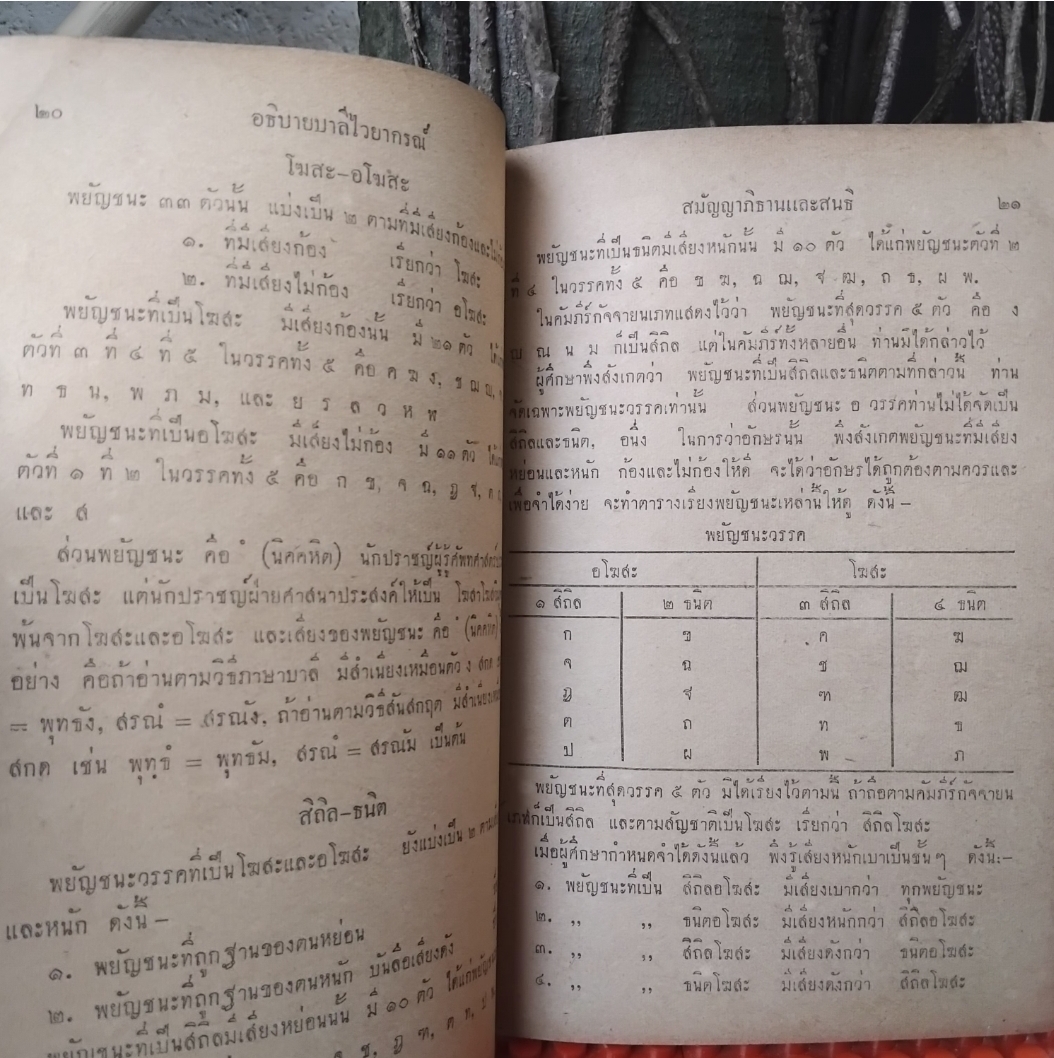 ๒๐
อธิบายบาลีไวยากรณ์
โฆสะ-อโฆสะ
พยัญชนะ ๓๓ ตัวนั้น แบ่งเป็น ๒ ตามที่มีเสียงก้องและไม่
๑. ที่มีเสียงก้อง เรียกว่า โฆสะ
๒. ที่มีเสียงไม่ก้อง เรียกว่า อโฆสะ
พยัญชนะที่เป็นโฆสะ มีเสียงก้องนั้น มี ๒๑ ตัว
ตัวที่ ๓ ที่ ๔ ที่ ๕ ในวรรคทั้ง ๕ คือ ค ฆ ง, ช ฌ ญ,
ท ธ น, พ ภ ม, และ ย ร ล ว ห ฬ
พยัญชนะที่เป็นอโฆสะ มีเสียงไม่ก้อง มี ๑๑ ตัว
ตัวที่ ๑ ที่ ๒ ในวรรคทั้ง ๕ คือ ก ข, จ ฉ, ฏ ฐ, ต
และ ส
ส่วนพยัญชนะ คือ ํ (นิคคหิต) นักปราชญ์ผู้รู้ศัพทศาสตร์
เป็นโฆสะ แต่นักปราชญ์ฝ่ายศาสนาประสงค์ให้เป็น
พ้นจากโฆสะและอโฆสะ และเสียงของพยัญชนะ คือ ํ (นิคคหิต)
อย่าง คือถ้าอ่านตามวิธีภาษาบาลี มีสำเนียงเหมือนตัว ง สกด
= พุทธัง, สรณํ = สรณัง, ถ้าอ่านตามวิธีสันสกฤต มีสำเนียง
สกด เช่น พุทฺธํ = พุทธัม, สรณํ = สรณัม เป็นต้น
สิถิล-ธนิต
พยัญชนะวรรคที่เป็นโฆสะและอโฆสะ ยังแบ่งเป็น ๒ ตาม
และหนัก ดังนี้ -
๑. พยัญชนะที่ถูกฐานของตนหย่อน
๒. พยัญชนะที่ถูกฐานของตนหนัก บันลือเสียงดัง
พยัญชนะที่เป็นสิถิลมีเสียงหย่อนนั้น มี ๑๐ ตัว ได้แก่
ช, ฏ ฑ, ต ท, ป
สมัญญาภิธานและสนธิ ๒๑
พยัญชนะที่เป็นธนิตมีเสียงหนักนั้น มี ๑๐ ตัว ได้แก่พยัญชนะตัวที่ ๒
ที่ ๔ ในวรรคทั้ง ๕ คือ ข ฆ, ฉ ฌ, ฐ ฒ, ถ ธ, ผ พ.
ในคัมภีร์กัจจายนเภทแสดงไว้ว่า พยัญชนะที่สุดวรรค ๕ ตัว คือ ง
ญ ณ น ม ก็เป็นสิถิล แต่ในคัมภีร์ทั้งหลายอื่น ท่านมิได้กล่าวไว้
ผู้ศึกษาพึงสังเกตว่า พยัญชนะที่เป็นสิถิลและธนิตตามที่กล่าวนี้ ท่าน
จัดเฉพาะพยัญชนะวรรคเท่านั้น ส่วนพยัญชนะ อ วรรคท่านไม่ได้จัดเป็น
สิถิลและธนิต, อนึ่ง ในการว่าอักษรนั้น พึงสังเกตพยัญชนะที่มีเสียง
หย่อนและหนัก ก้องและไม่ก้องให้ดี จะได้ว่าอักษรได้ถูกต้องตามควรและ
เพื่อจำได้ง่าย จะทำตารางเรียงพยัญชนะเหล่านี้ให้ดู ดังนี้ -
พยัญชนะวรรค
อโฆสะ โฆสะ
๑ สิถิล ๒ ธนิต ๓ สิถิล ๔ ธนิต
ก ข ค ฆ
จ ฉ ช ฌ
ฏ ฐ ฑ ฒ
ต ถ ท ธ
ป ผ พ ภ
พยัญชนะที่สุดวรรค ๕ ตัว มิได้เรียงไว้ตามนี้ ถ้าถือตามคัมภีร์กัจจายน
เภทก็เป็นสิถิล และตามสัญชาติเป็นโฆสะ เรียกว่า สิถิลโฆสะ
เมื่อผู้ศึกษากำหนดจำได้ดังนี้แล้ว พึงรู้เสียงหนักเบาเป็นชั้น ๆ ดังนี้:-
๑. พยัญชนะที่เป็น สิถิลอโฆสะ มีเสียงเบากว่า ทุกพยัญชนะ
๒. ,, ,, ธนิตอโฆสะ มีเสียงหนักกว่า สิถิลอโฆสะ
๓. ,, ,, สิถิลโฆสะ มีเสียงดังกว่า ธนิตอโฆสะ
๔. ,, ,, ธนิตโฆสะ มีเสียงดังกว่า สิถิลโฆสะ